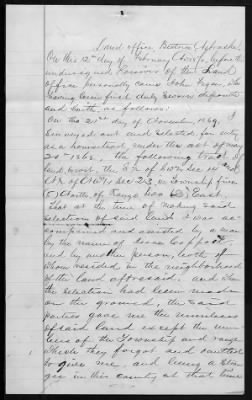 Land office Beatrice Nebraska
On this 12th day of February before the
undersigned Receiver of the Land
office personally came John
having been first duly sworn deposeth
and saith as follows:
On the 21st day of November 1869, I
surveyed out and selected for entry
as a homestead, under the act of May
20th 1862, the following tract of
land,
in Township five
(5) North of Range East
that at the time of making said
selection of said land I was ac-
companied and assisted by a man
by the name of
and by another person, both of
whom resided in the neighborhood
of the land aforesaid, and
the selection had been made
on the ground, the said
parties gave me the numbers
of said land except the num-
bers of the Township and range
which they forgot and omitted
to give me, and being a stran-
ger in this country at that time